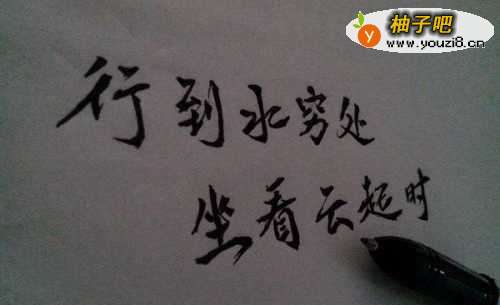 柚子吧
www.youzi8.cn
行到水穷处
坐看云起时